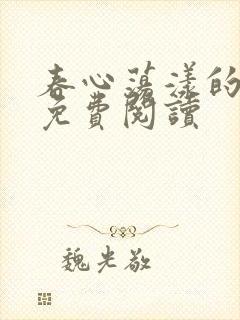 春心荡漾的
免費閱讀
魏光敬